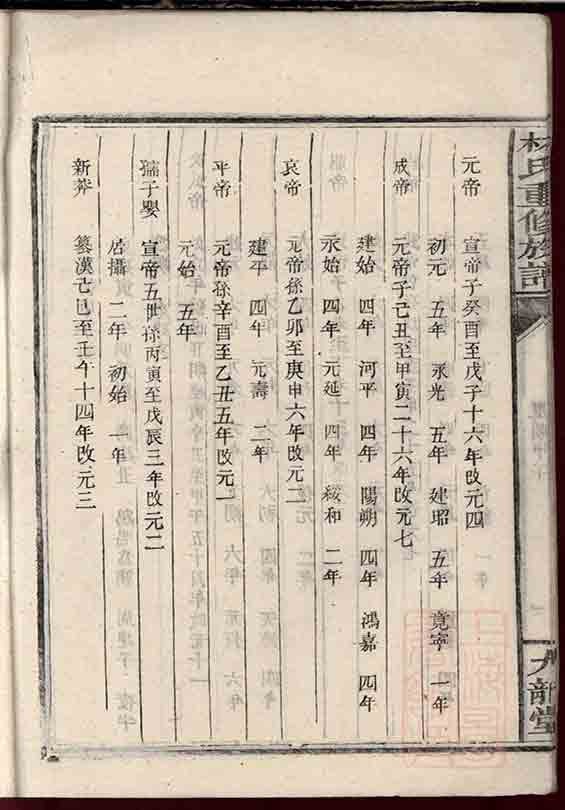 林氏重修族譜
元帝　宣帝子癸酉至戊子十六年改元四
初元　五年　永光　五年　建昭　五年　竟寧　一年
成帝　元帝子己丑至甲寅二十六年改元七
建始　四年　河平　四年　陽朔　四年　鴻嘉　四年
永始　四年　元延　四年　綏和　二年
哀帝　元帝孫乙卯至庚申六年改元二
建平　四年　元壽　二年
平帝　元帝孫辛酉至乙丑五年改元一
元始　五年
孺子嬰　宣帝五世孫丙寅至戊辰三年改元二
居攝　二年　初始　一年
新莽　簒漢己巳至壬午十四年改元三